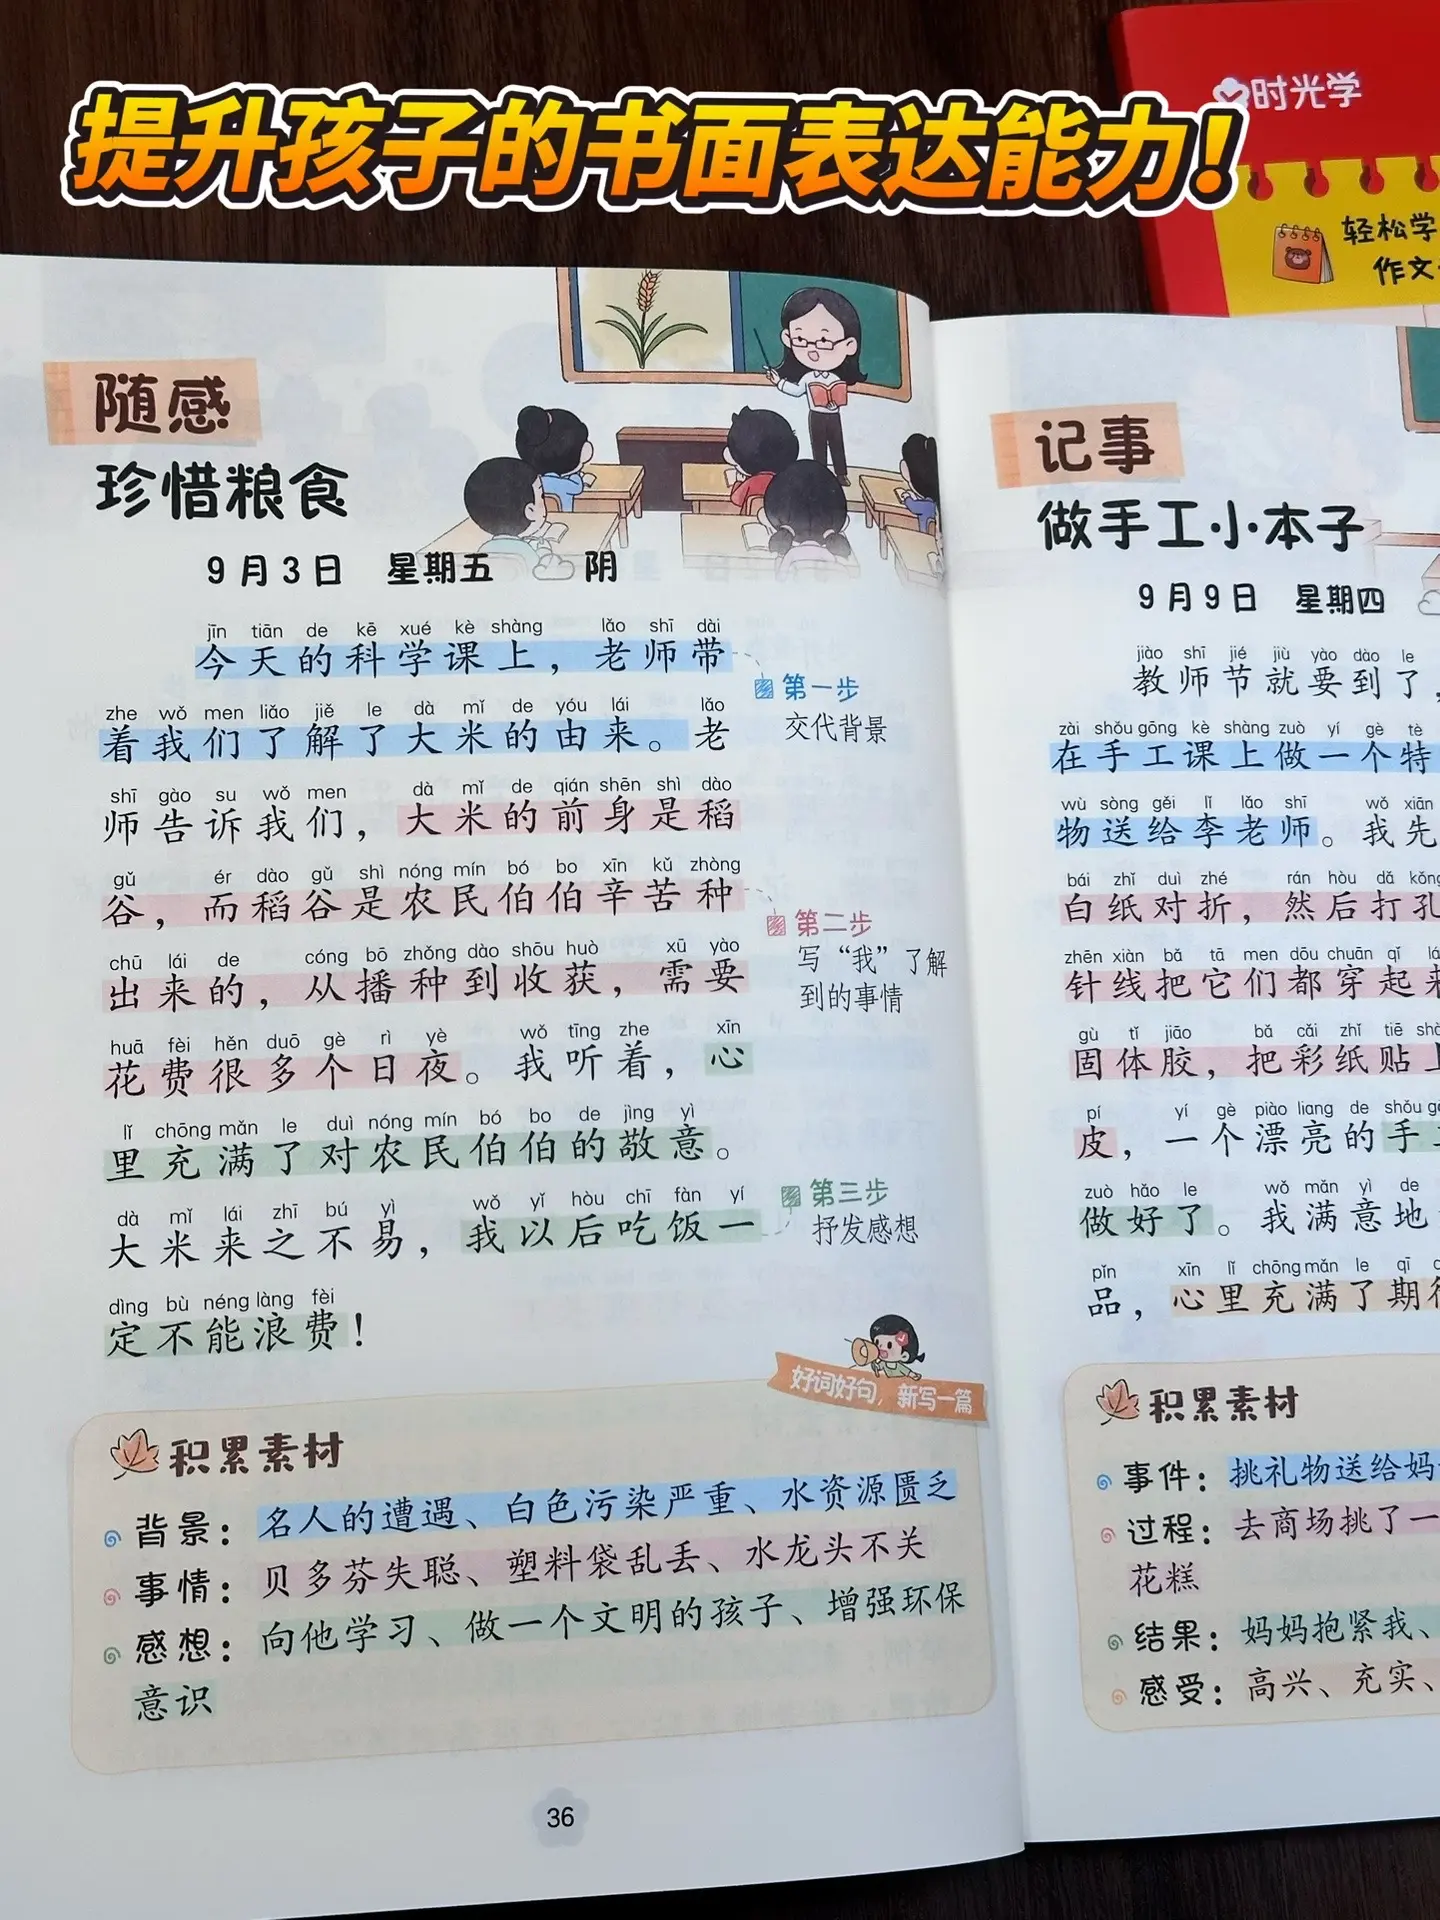 提升孩子的书面表达能力！
时光学
轻松学
作文
随感
珍惜粮食
9月3日 星期五 阴
jīn tiān de kē xué kè shàng lǎo shī dài
今天的科学课上，老师带
zhe wǒ men liǎo jiě le dà mǐ de yóu lái lǎo
着我们了解了大米的由来。老
shī gào su wǒ men dà mǐ de qián shēn shì dào
师告诉我们，大米的前身是稻
gǔ ér dào gǔ shì nóng mín bó bo xīn kǔ zhòng
谷，而稻谷是农民伯伯辛苦种
chū lái de cóng bō zhǒng dào shōu huò xū yào
出来的，从播种到收获，需要
huā fèi hěn duō gè rì yè wǒ tīng zhe xīn
花费很多个日夜。我听着，心
lǐ chōng mǎn le duì nóng mín bó bo de jìng yì
里充满了对农民伯伯的敬意。
dà mǐ lái zhī bú yì wǒ yǐ hòu chī fàn yí
大米来之不易，我以后吃饭一
dìng bù néng làng fèi
定不能浪费！
第一步
交代背景
第二步
写“我”了解
到的事情
第三步
抒发感想
好词好句，新写一篇
积累素材
背景：名人的遭遇、白色污染严重、水资源匮乏
事情：贝多芬失聪、塑料袋乱丢、水龙头不关
感想：向他学习、做一个文明的孩子、增强环保
意识
36
记事
做手工小本子
9月9日 星期四
jiào shī jié jiù yào dào le
教师节就要到了，
zài shǒu gōng kè shàng zuò yí gè tè
在手工课上做一个特
wù sòng gěi lǐ lǎo shī wǒ xiān
物送给李老师。我先
bái zhǐ duì zhé rán hòu dǎ kǒng
白纸对折，然后打孔
zhēn xiàn bǎ tā men dōu chuān qǐ
针线把它们都穿起来
gù tǐ jiāo bǎ cǎi zhǐ tiē
固体胶，把彩纸贴上
pí yí gè piào liang de shǒu
皮，一个漂亮的手工
zuò hǎo le wǒ mǎn yì de
做好了。我满意地
pǐn xīn lǐ chōng mǎn le qī
品，心里充满了期待
积累素材
事件：挑礼物送给妈
过程：去商场挑了一
花糕
结果：妈妈抱紧我、
感受：高兴、充实、